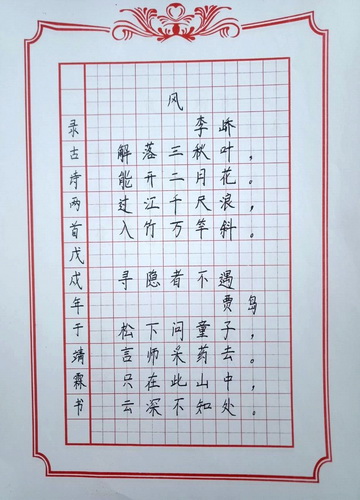 风
李峤
解落三秋叶，
能开二月花。
过江千尺浪，
入竹万竿斜。
寻隐者不遇
贾岛
松下问童子，
言师采药去。
只在此山中，
云深不知处。
录古诗两首戊戌年于靖霖书